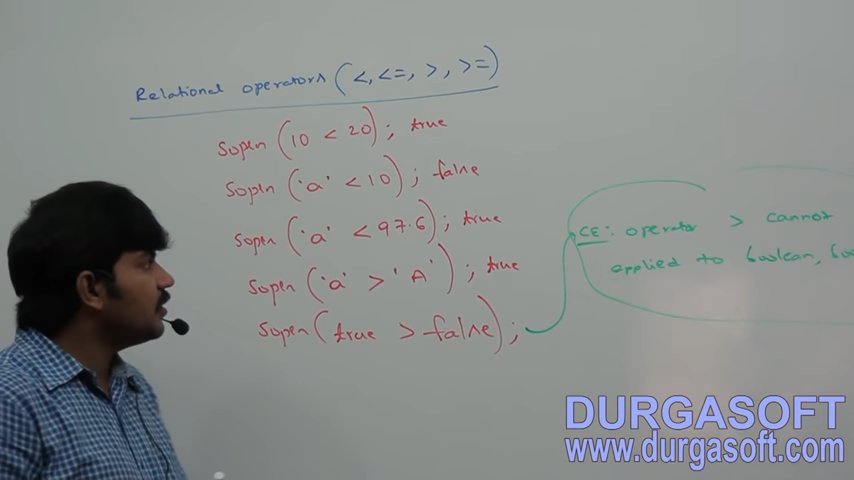 Relational operators (<, <=, >, >=)
Sopln (10 < 20); true
Sopln ('a' < 10); false
Sopln ('a' < 97.6); true
Sopln ('a' > 'A'); true
Sopln (true > false);
CE: operator > cannot
applied to boolean,
DURGASOFT
www.durgasoft.com